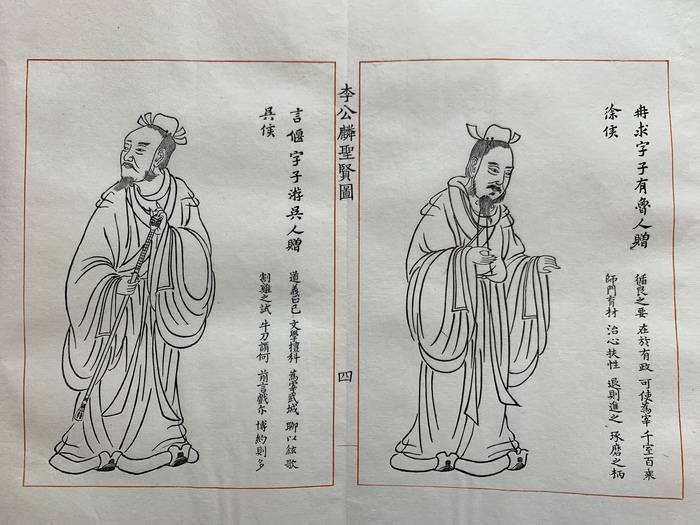 冉求字子有魯人贈
徐侯
循良之要 在於有政 可使為宰 千室百乘
師門育材 治心扶性 退則進之 琢磨之柄
李公麟聖賢圖
四
言偃字子游吳人贈
吳侯
道義正己 文學擅科 為宰武城 聊以絃歌
割雞之試 牛刀謂何 前言戲尔 博約則多